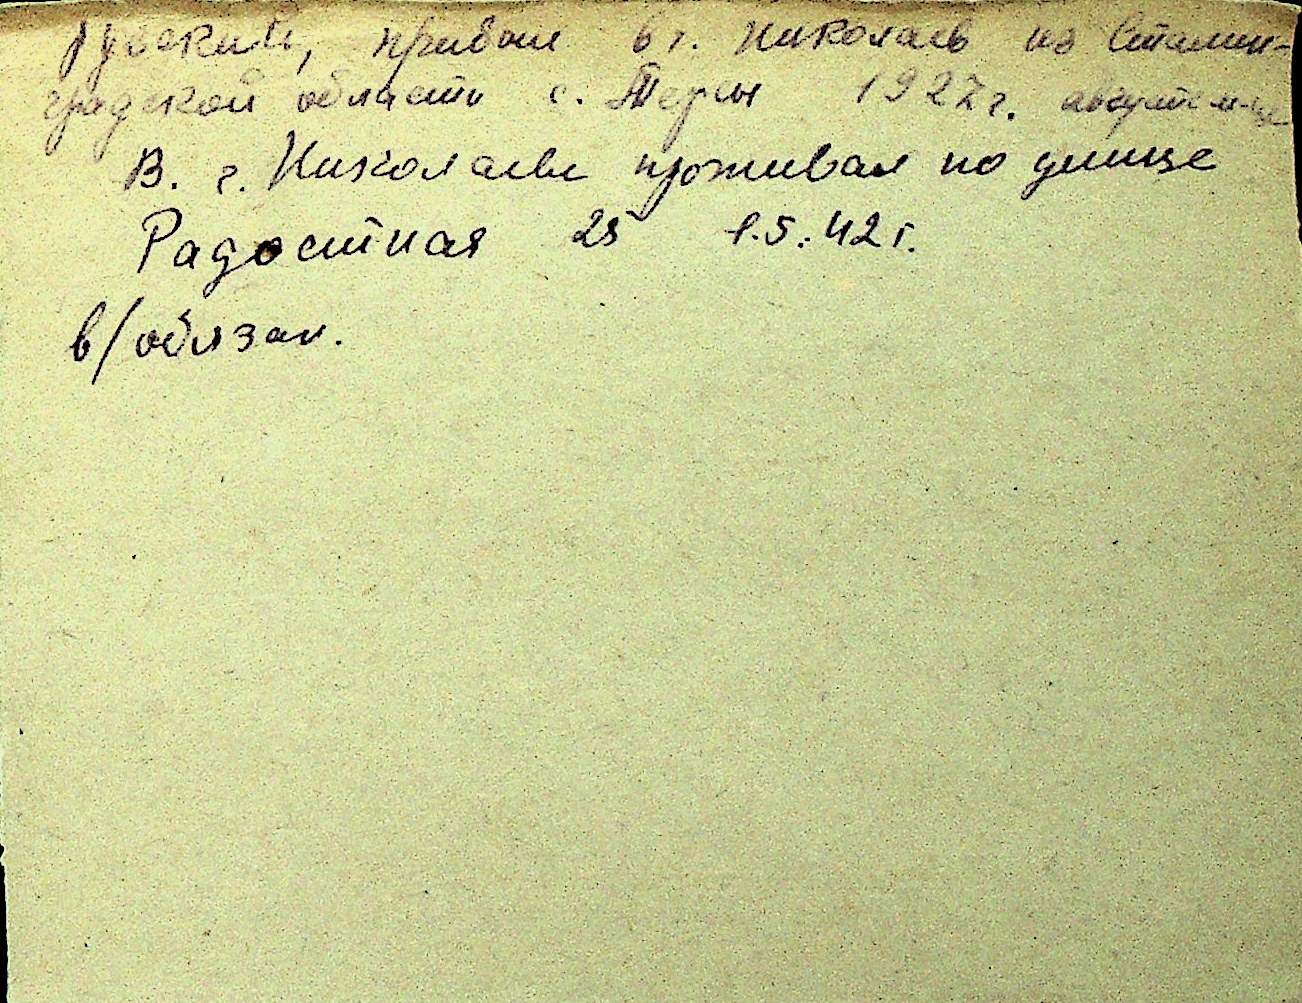 Русский, прибыл в г. Николаев из Сталин-
градской области с. Терсы 1927 г. август м-це
В. г. Николаеве проживал по улице
Радостная 25 1.5.42 г.
в/обязан.